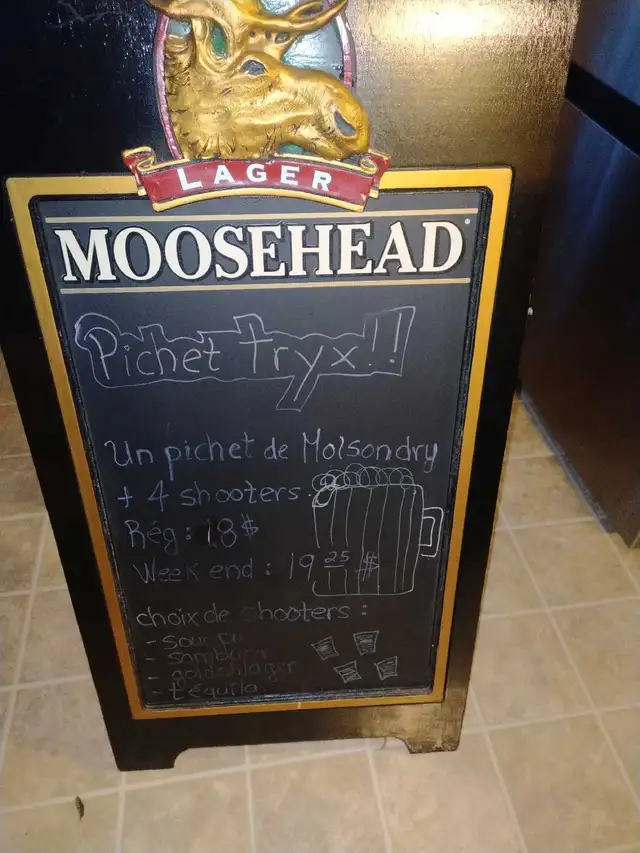 LAGER
MOOSEHEAD
Pichet Tryx!!
Un pichet de Molsondry
+ 4 shooters
Rég: 18$
Week end : 19 25 $
choix de shooters :
- sour pu
- sambuca
- goldshlager
- téquila